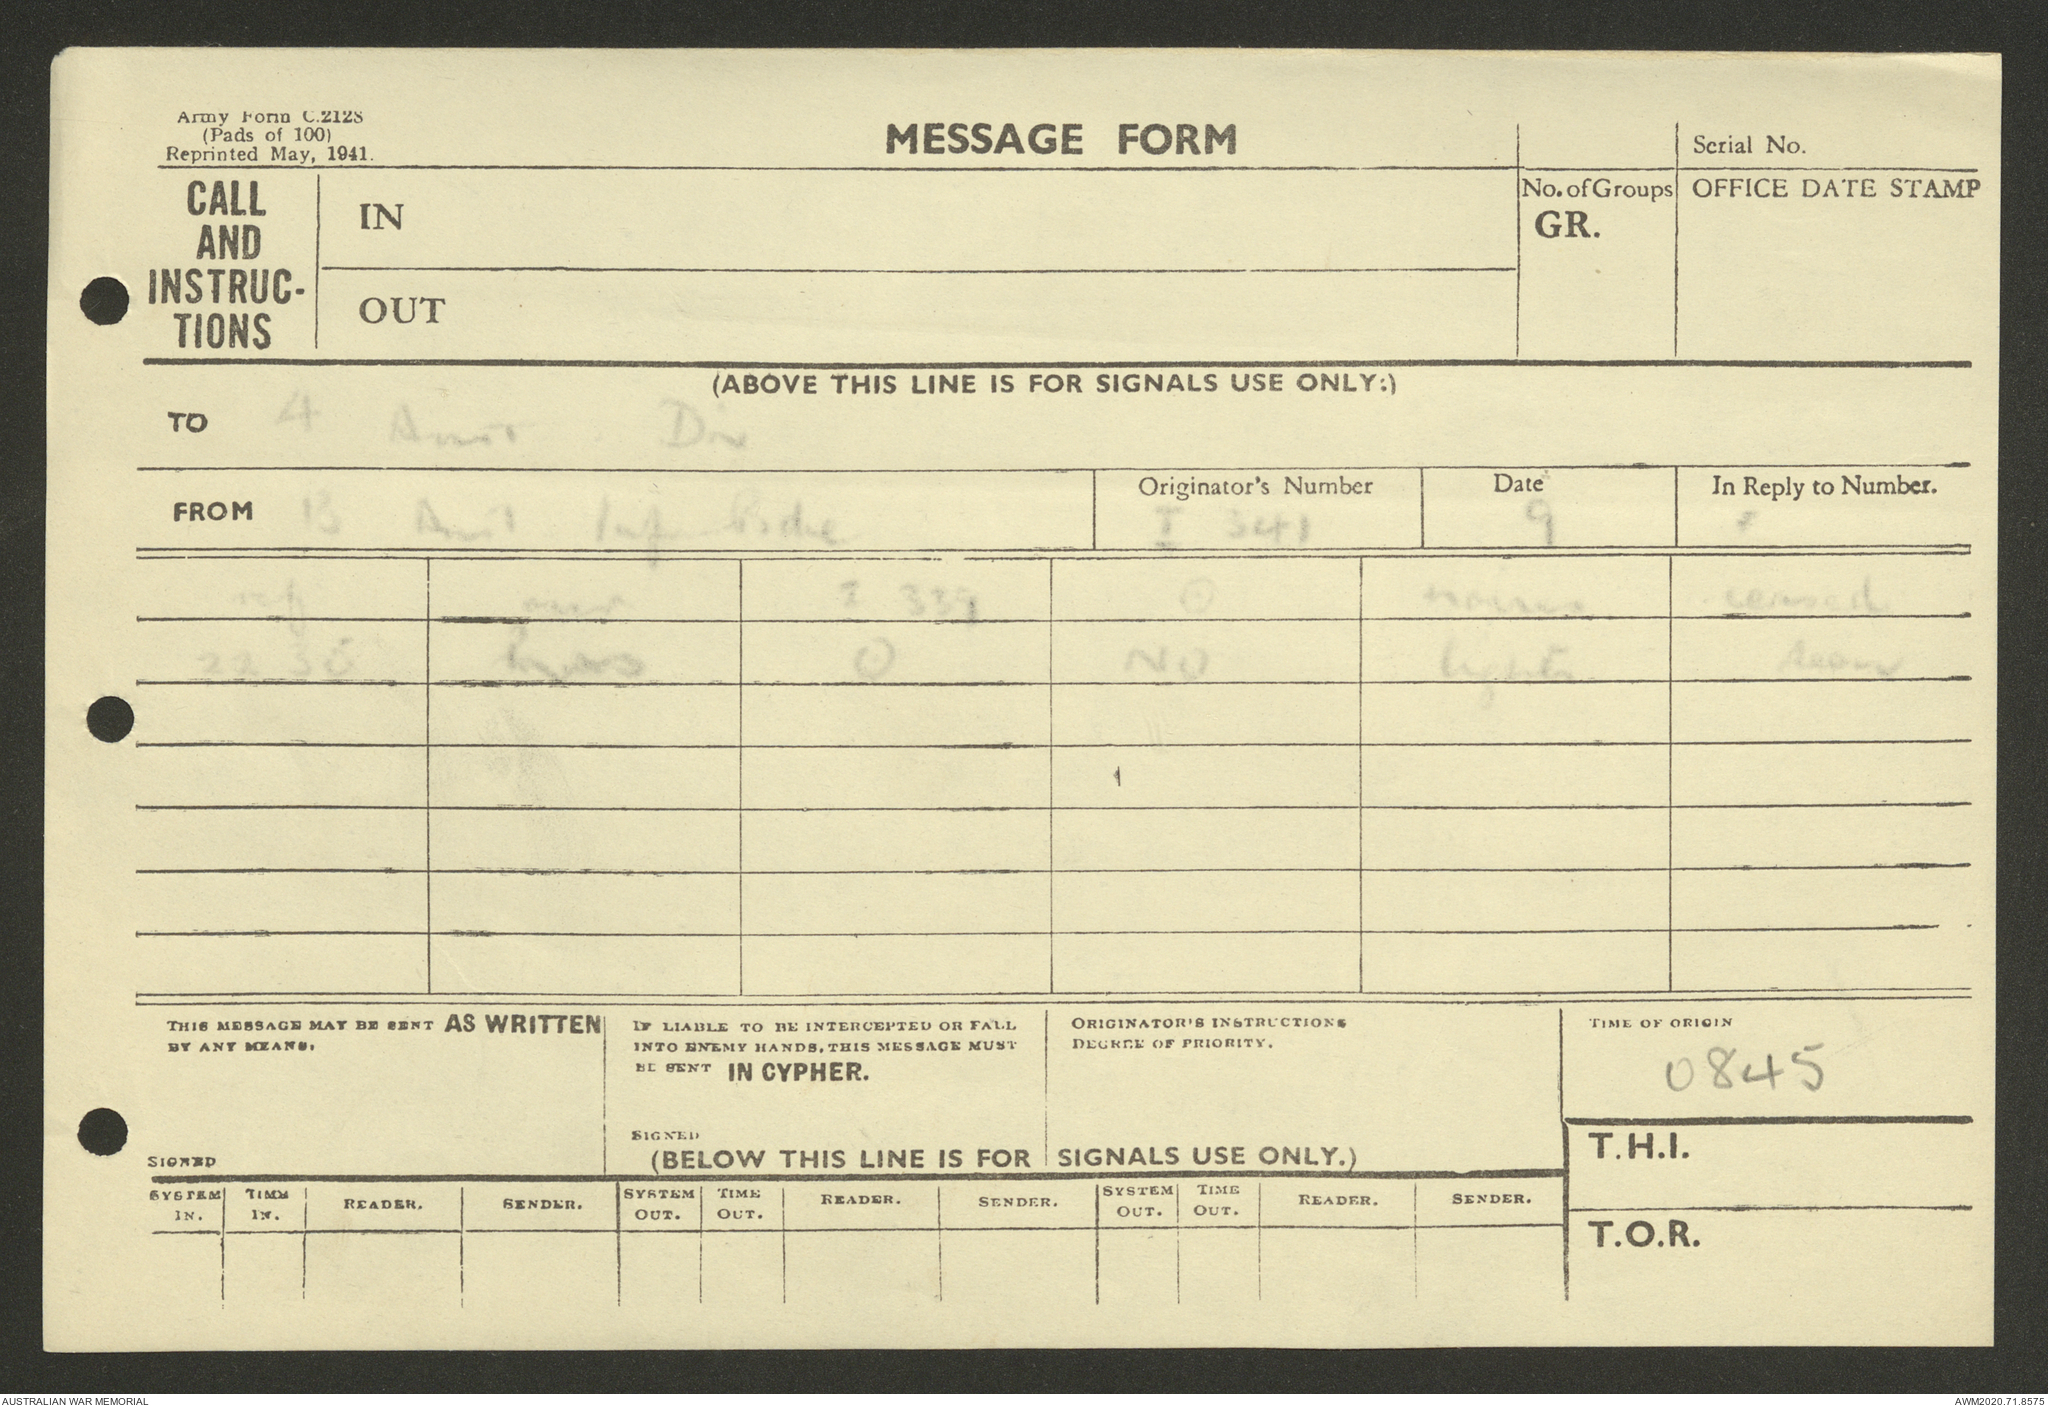 Army Form C.2128
(Pads of 100)
Reprinted May, 1941.
MESSAGE FORM
Serial No.
CALL
AND
INSTRUC-
TIONS
IN
OUT
No. of Groups
GR.
OFFICE DATE STAMP
(ABOVE THIS LINE IS FOR SIGNALS USE ONLY.)
TO 4 Aust Div
FROM 13 Aust Inf Bde
Originator's Number
I 341
Date
9
In Reply to Number.
ref my I 339 ⊙ noises ceased
2230 hours ⊙ NO lights seen
THIS MESSAGE MAY BE SENT AS WRITTEN
BY ANY MEANS.
SIGNED
IF LIABLE TO BE INTERCEPTED OR FALL
INTO ENEMY HANDS, THIS MESSAGE MUST
BE SENT IN CYPHER.
SIGNED
ORIGINATOR'S INSTRUCTIONS
DEGREE OF PRIORITY.
TIME OF ORIGIN
0845
T.H.I.
T.O.R.
(BELOW THIS LINE IS FOR SIGNALS USE ONLY.)
SYSTEM IN. TIME IN. READER. SENDER. SYSTEM OUT. TIME OUT. READER. SENDER. SYSTEM OUT. TIME OUT. READER. SENDER.
AUSTRALIAN WAR MEMORIAL
AWM2020.71.8575